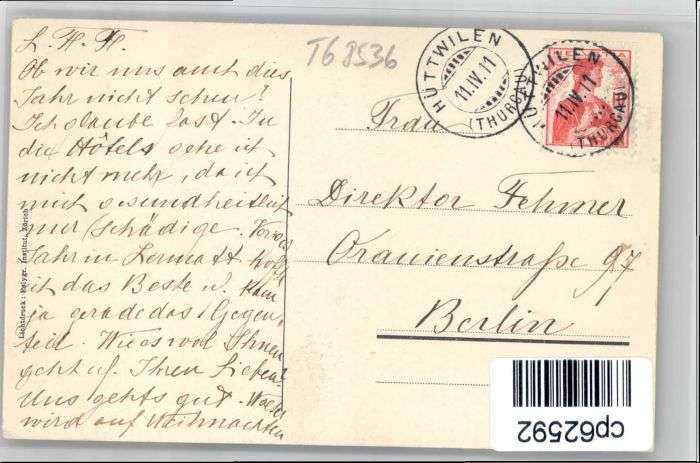 L. H. H.
Ob wir uns auch dies
Jahr nicht sehen?
Ich glaube fast. In
die Hôtels gehe ich
nicht mehr, da ich
mich gesundheitlich
nur schädige. Voriges
Jahr in Zermatt hofft
ich das Beste u. kam
ja gerade das Gegen-
teil. Wie es wol Ihnen
geht u. Ihren Lieben?
Uns gehts gut.
wird auf Weihnachten
T68536
HÜTTWILEN
11.IV.11
(THURGAU)
HÜTTWILEN
11.IV.11
(THURGAU)
Frau
Direktor Fehmer
Oranienstraße 97
Berlin
Lichtdruck: Polygr. Institut, Zürich
cp62592